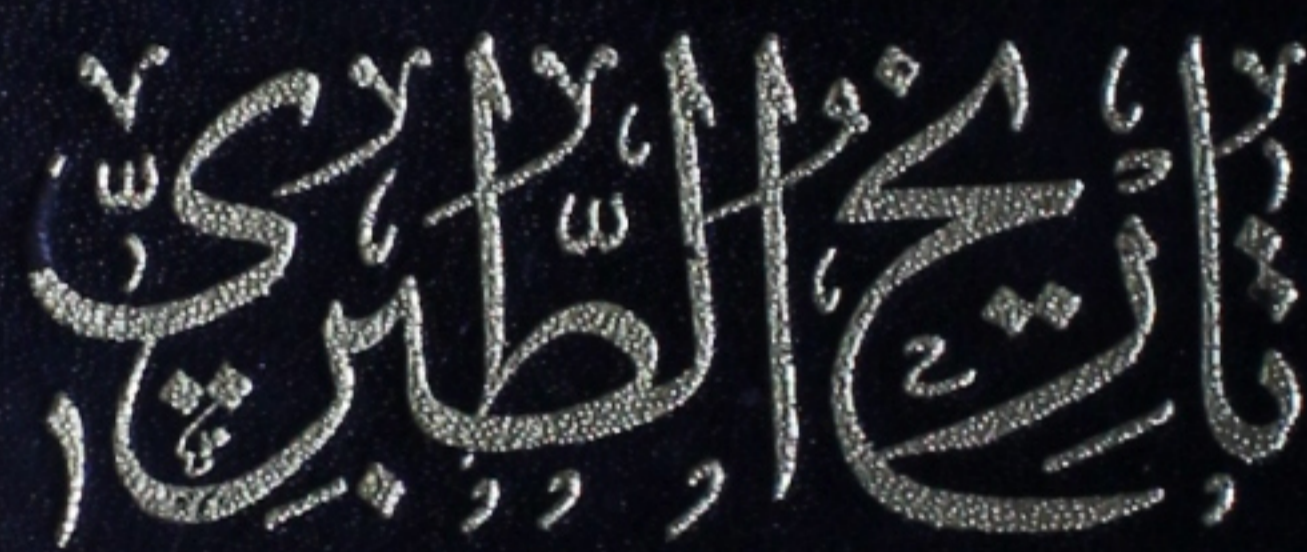 تاريخ الطبري